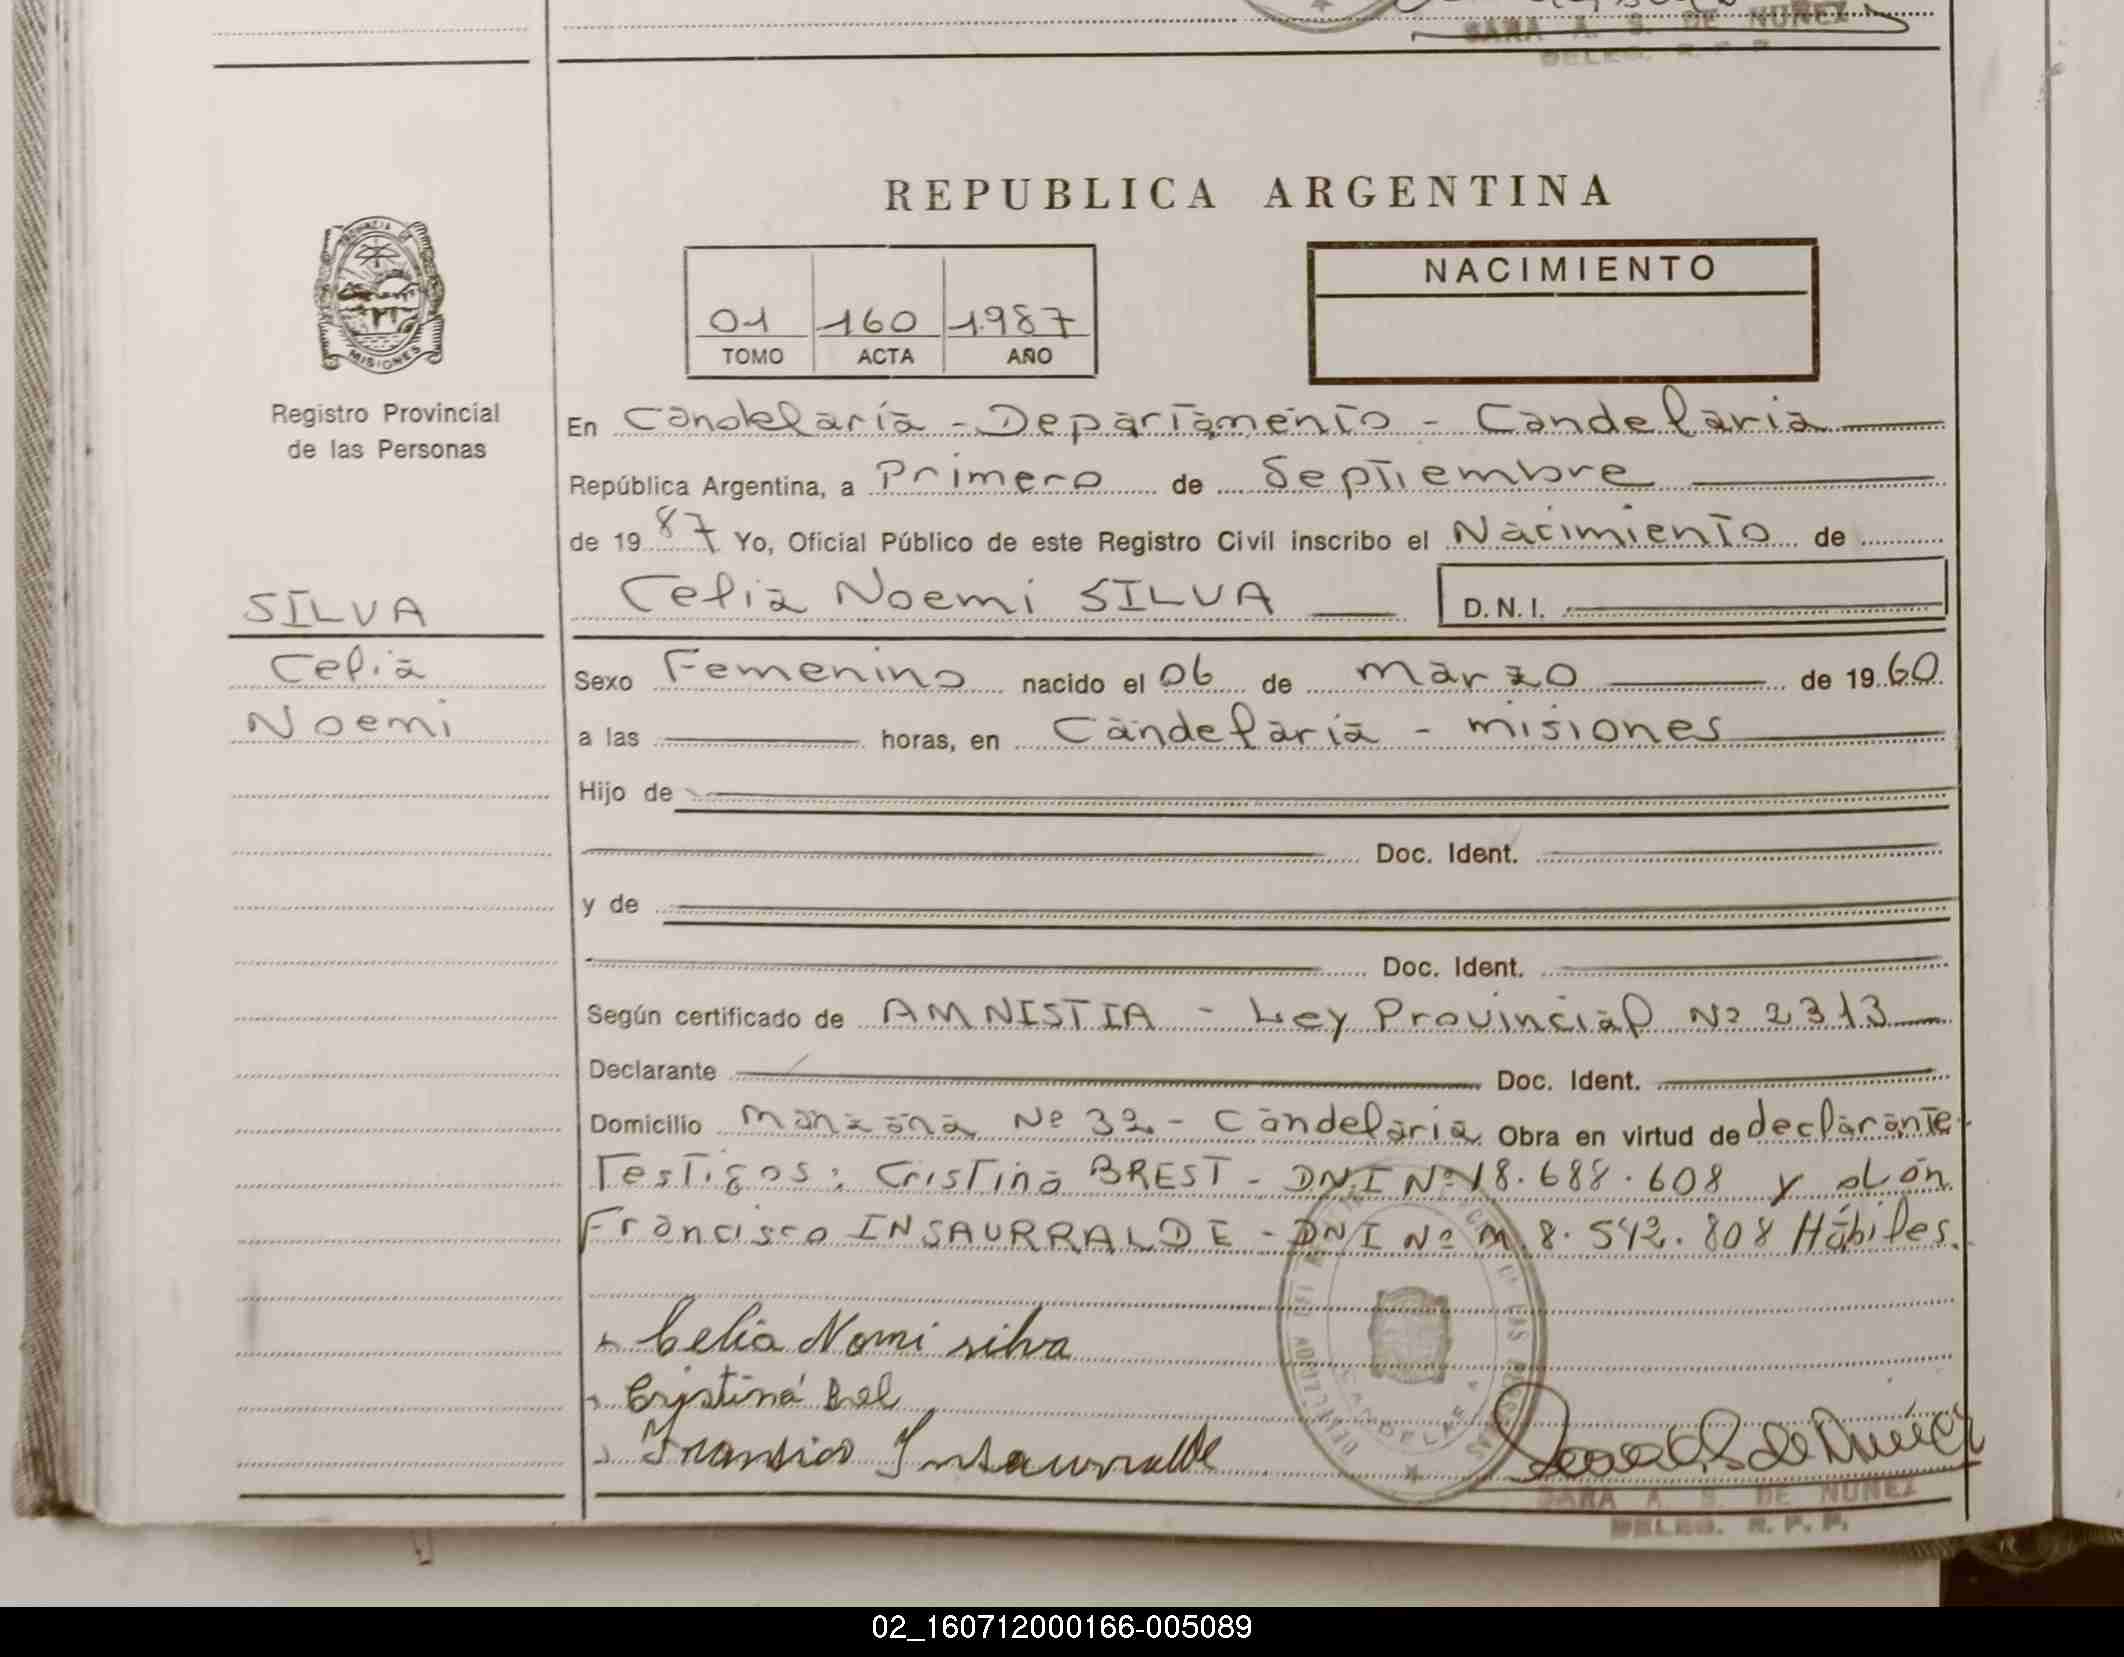 SARA A. S. DE NUÑEZ
DELEG. R. P. P.
REPUBLICA ARGENTINA
PROVINCIA DE MISIONES
Registro Provincial
de las Personas
01 160 1987
TOMO ACTA AÑO
NACIMIENTO
En Candelaria - Departamento - Candelaria
República Argentina, a Primero de Septiembre
de 19 87 Yo, Oficial Público de este Registro Civil inscribo el Nacimiento de
Celia Noemi SILVA D.N.I.
SILVA
Celia
Noemi
Sexo Femenino nacido el 06 de marzo de 19 60
a las horas, en Candelaria - misiones
Hijo de
Doc. Ident.
y de
Doc. Ident.
Según certificado de AMNISTIA - Ley Provincial Nº 2313
Declarante Doc. Ident.
Domicilio Manzana Nº 32 - Candelaria Obra en virtud de declarante
Testigos: Cristina BREST - DNI Nº 18.688.608 y
Francisco INSAURRALDE - DNI Nº M. 8.542.808 Hábiles.
Celia Nomi silva
Cristina
Fransico Insaurralde
CANDELARIA
SARA A. S. DE NUÑEZ
DELEG. R. P. P.
02_160712000166-005089